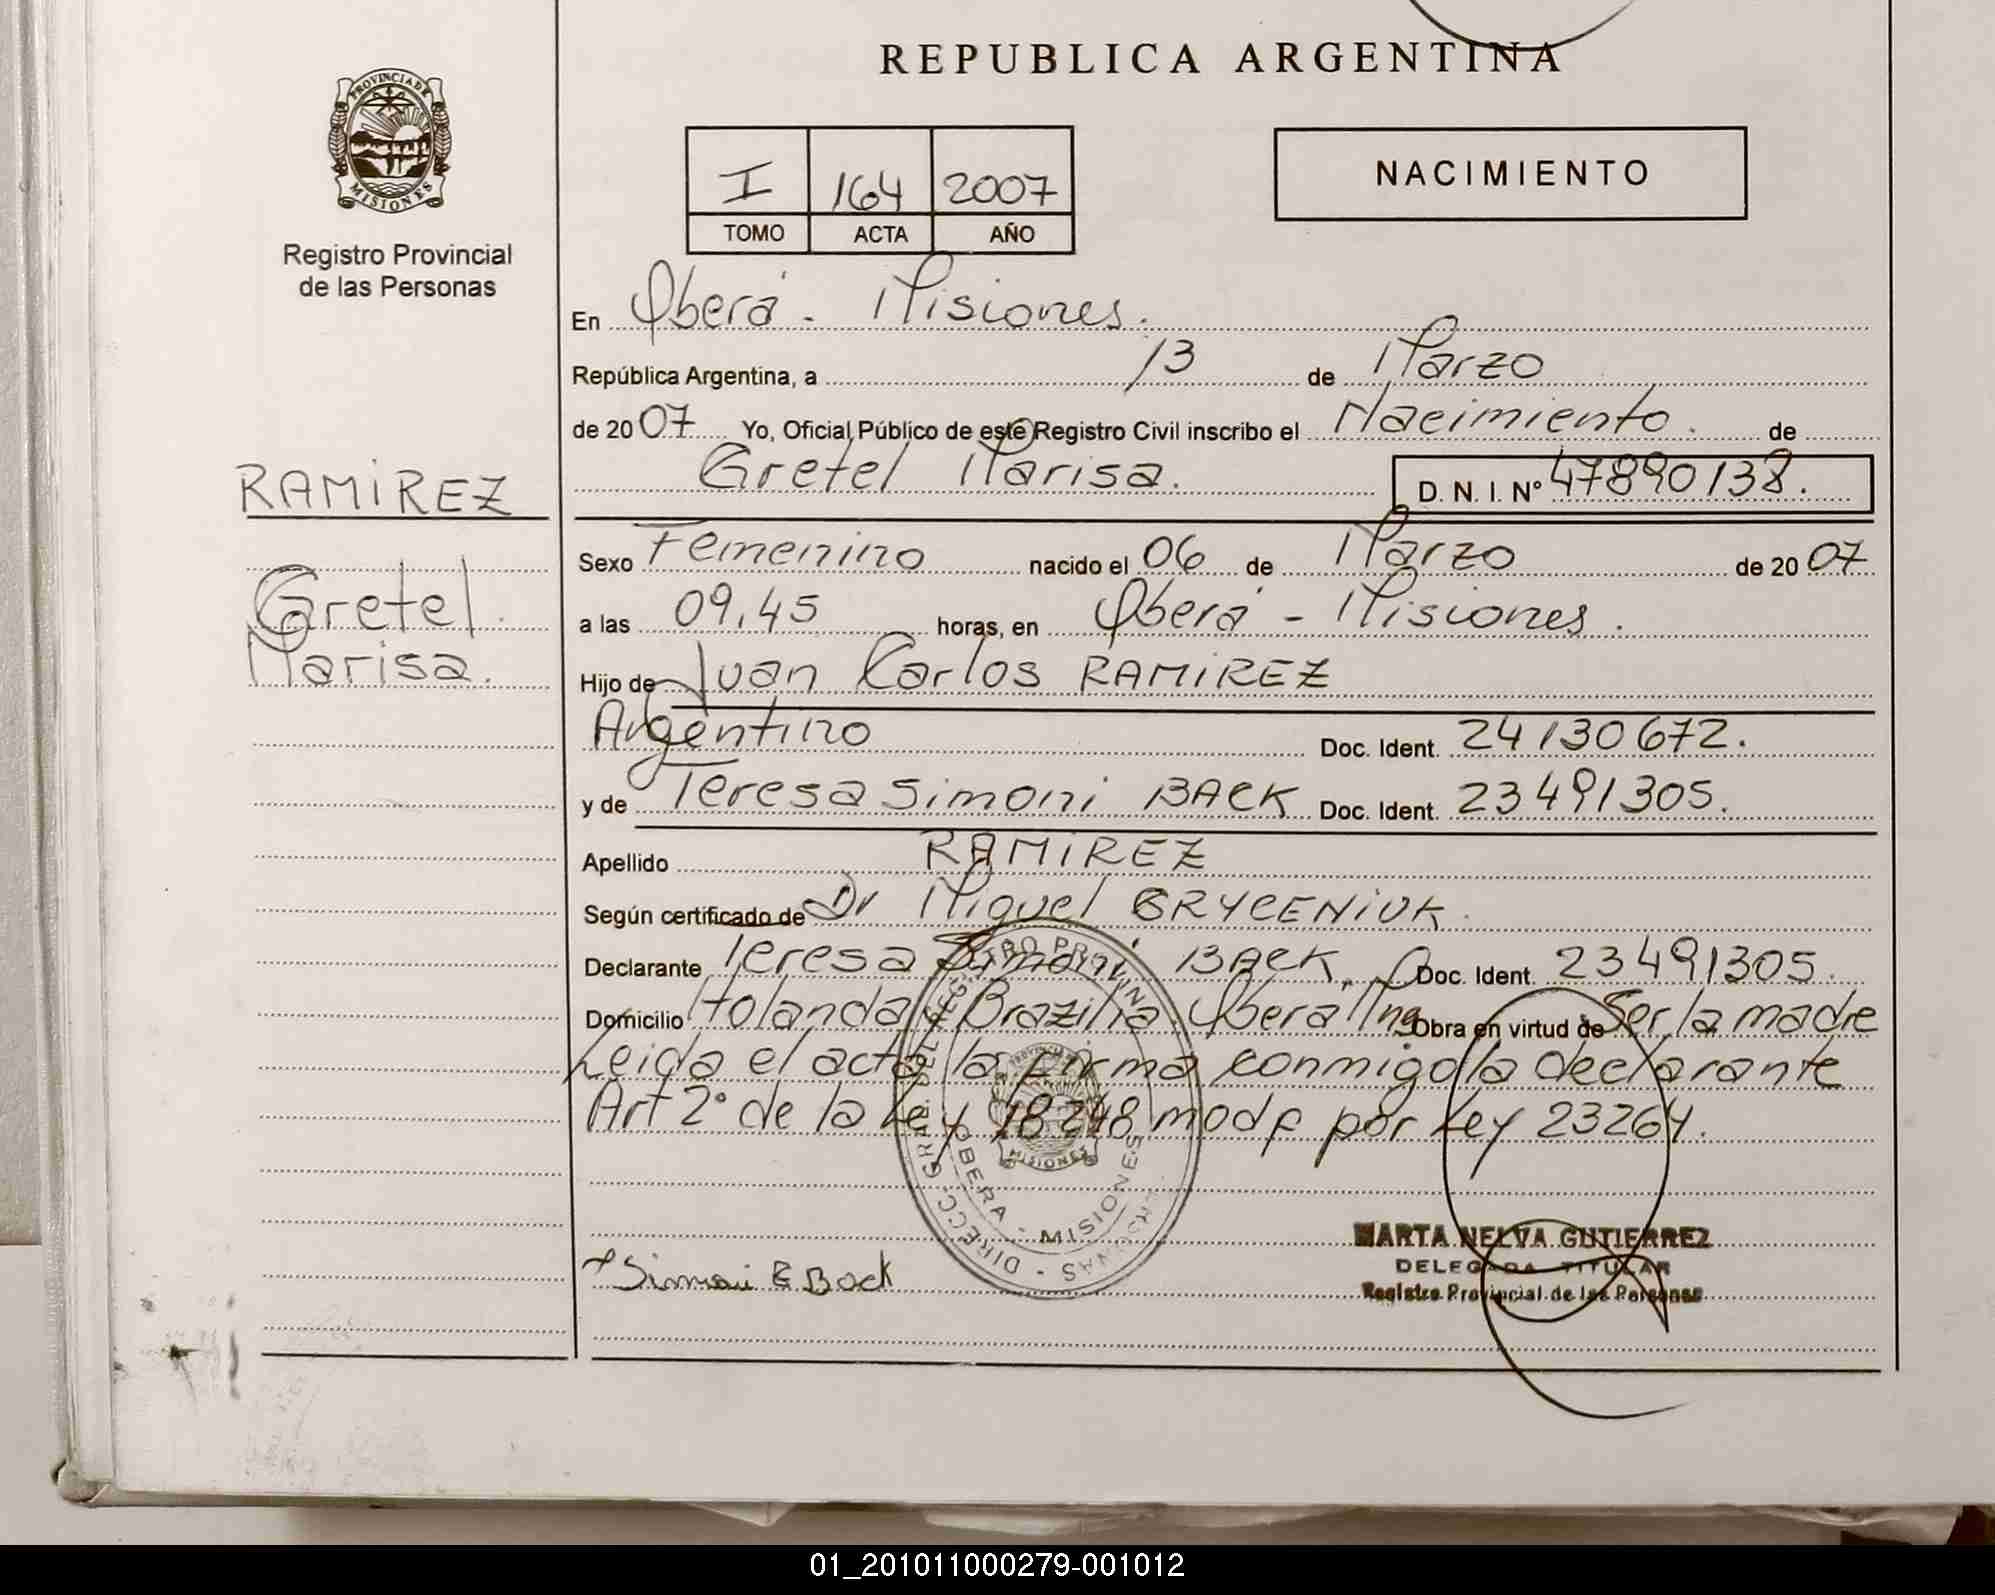 REPUBLICA ARGENTINA
PROVINCIA DE
MISIONES
Registro Provincial
de las Personas
I 164 2007
TOMO ACTA AÑO
NACIMIENTO
En Oberá - Misiones.
República Argentina, a 13 de Marzo
de 2007 Yo, Oficial Público de este Registro Civil inscribo el Nacimiento. de
Gretel Marisa. D. N. I. Nº 47890138.
RAMIREZ
Gretel
Marisa.
Sexo Femenino nacido el 06 de Marzo de 2007
a las 09.45 horas, en Oberá - Misiones.
Hijo de Juan Carlos RAMIREZ
Argentino Doc. Ident. 24130672.
y de Teresa Simoni BACK Doc. Ident. 23491305.
Apellido RAMIREZ
Según certificado de Dr Miguel GRYCENIUK.
Declarante Teresa Simoni BACK. Doc. Ident. 23491305.
Domicilio Holanda y Brazilia Oberá Mnes Obra en virtud de Ser la madre
Leida el acta la firma conmigo la declarante
Art 2° de la Ley 18248 modf por Ley 23264.
OBERA - MISIONES
MISIONES
Simoni B Back
MARTA NELVA GUTIERREZ
DELEGADA TITULAR
Registro Provincial de las Personas
01_201011000279-001012